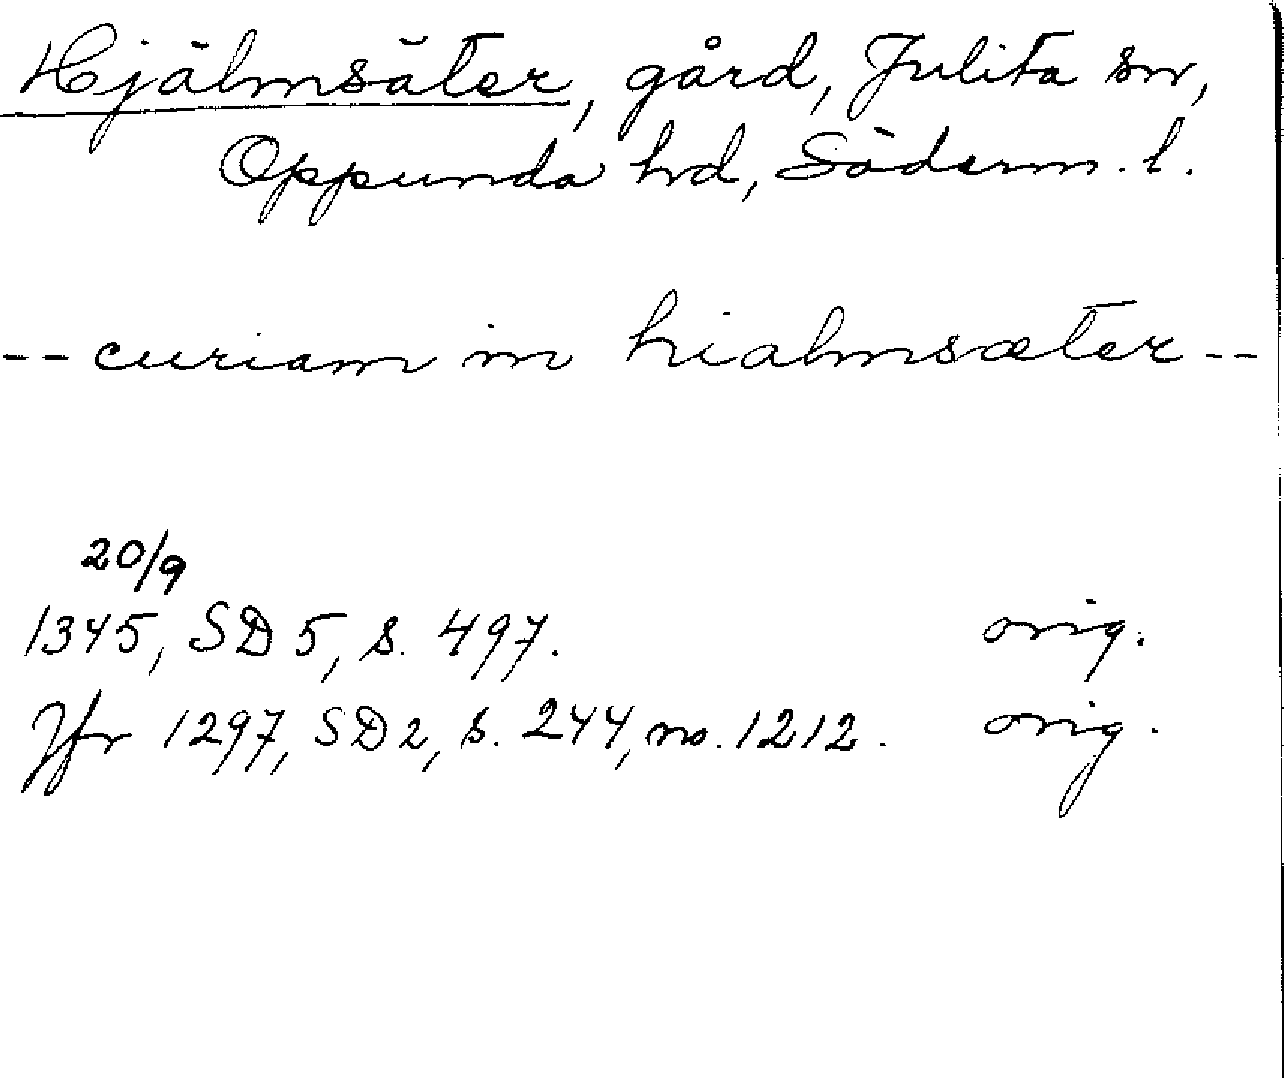 Hjälmsäter, gård, Julita sn,
Oppunda hd, Söderm. l.
-- curiam in hialmsæter --
20/9
1345, SD 5, s. 497. orig.
Jfr 1297, SD 2, s. 244, no. 1212. orig.